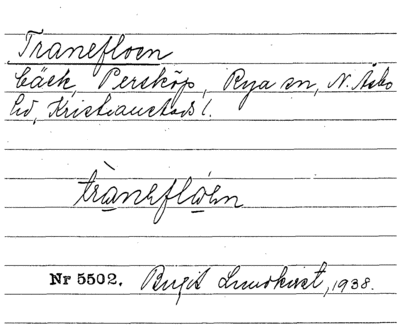 Tranefloen
bäck, Persköp, Rya sn, N. Åsbo
hd, Kristianstads l.
trànefløen
Nr 5502. Birgit Lundkvist, 1938.